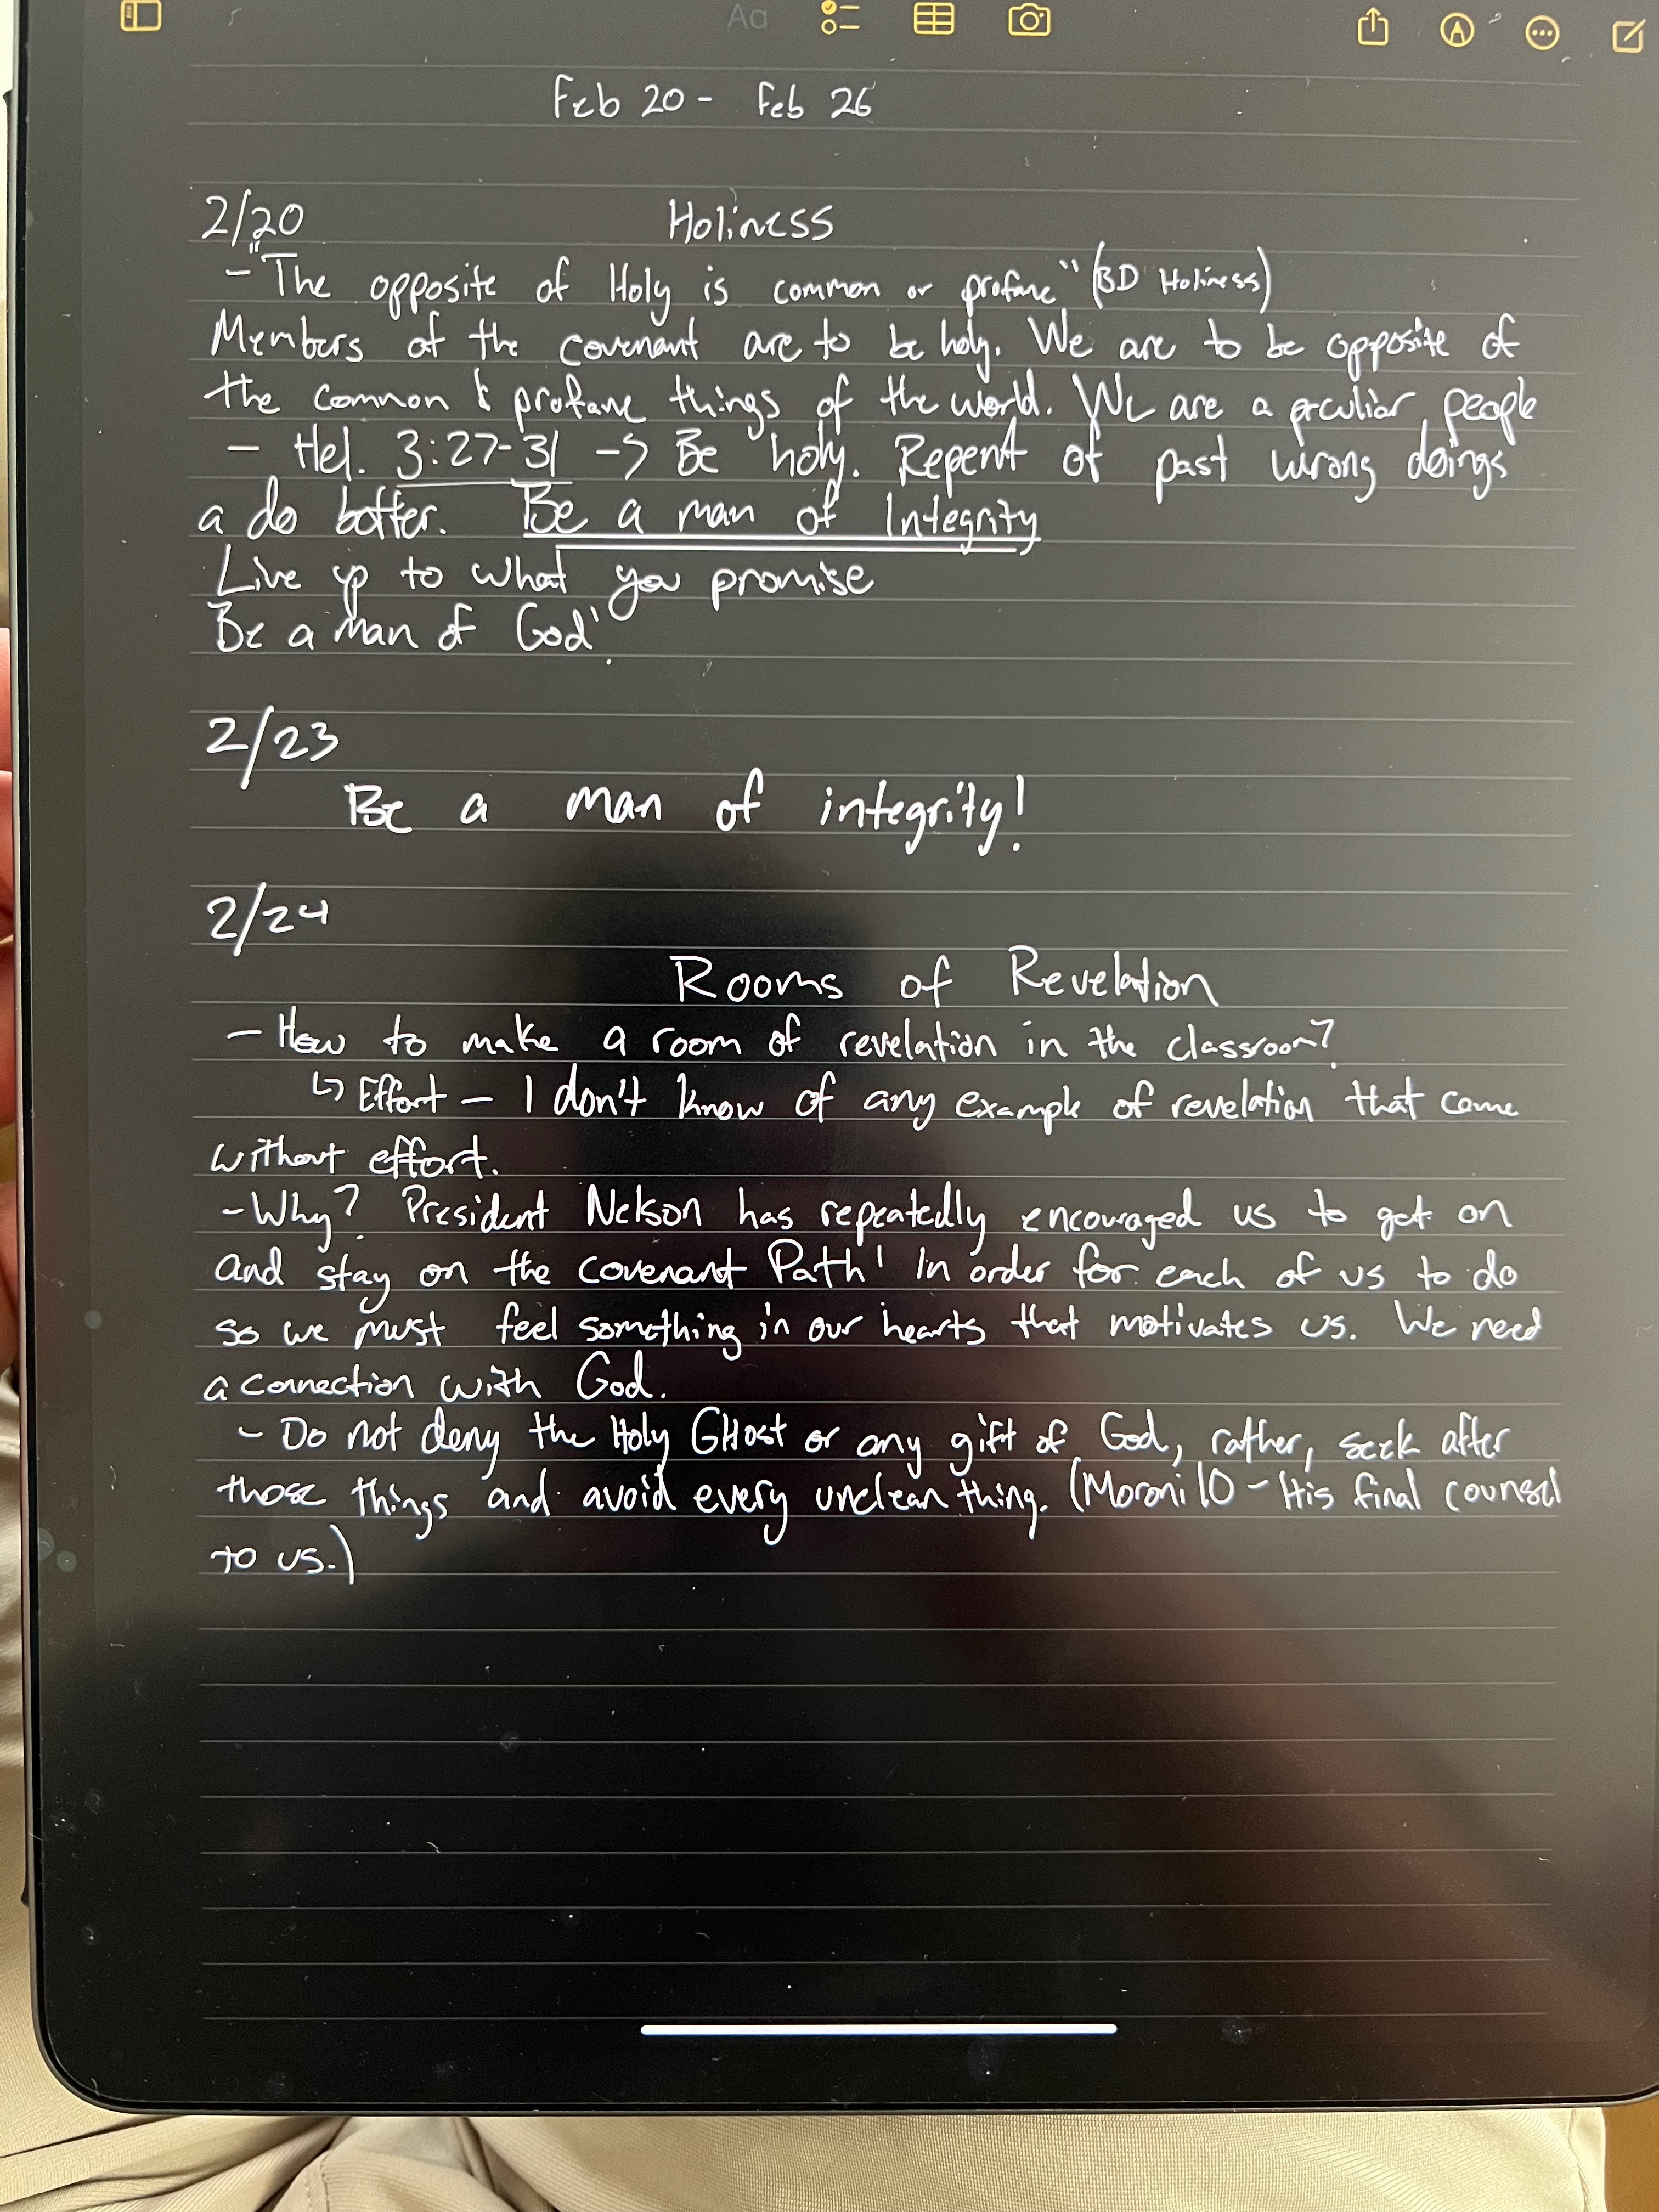 Aa
Feb 20 - Feb 26
2/20 Holiness
- "The opposite of Holy is common or profane" (BD Holiness)
Members of the covenant are to be holy. We are to be opposite of
the common & profane things of the world. We are a peculiar people
- Hel. 3:27-31 -> Be holy. Repent of past wrong doings
a do better. Be a man of Integrity
Live up to what you promise
Be a man of God
2/23
Be a man of integrity!
2/24
Rooms of Revelation
- How to make a room of revelation in the classroom?
↳ Effort - I don't know of any example of revelation that came
without effort.
- Why? President Nelson has repeatedly encouraged us to get on
and stay on the covenant Path! In order for each of us to do
so we must feel something in our hearts that motivates us. We need
a connection with God.
- Do not deny the Holy GHost or any gift of God, rather, seek after
those things and avoid every unclean thing. (Moroni 10 - His final counsel
to us.)